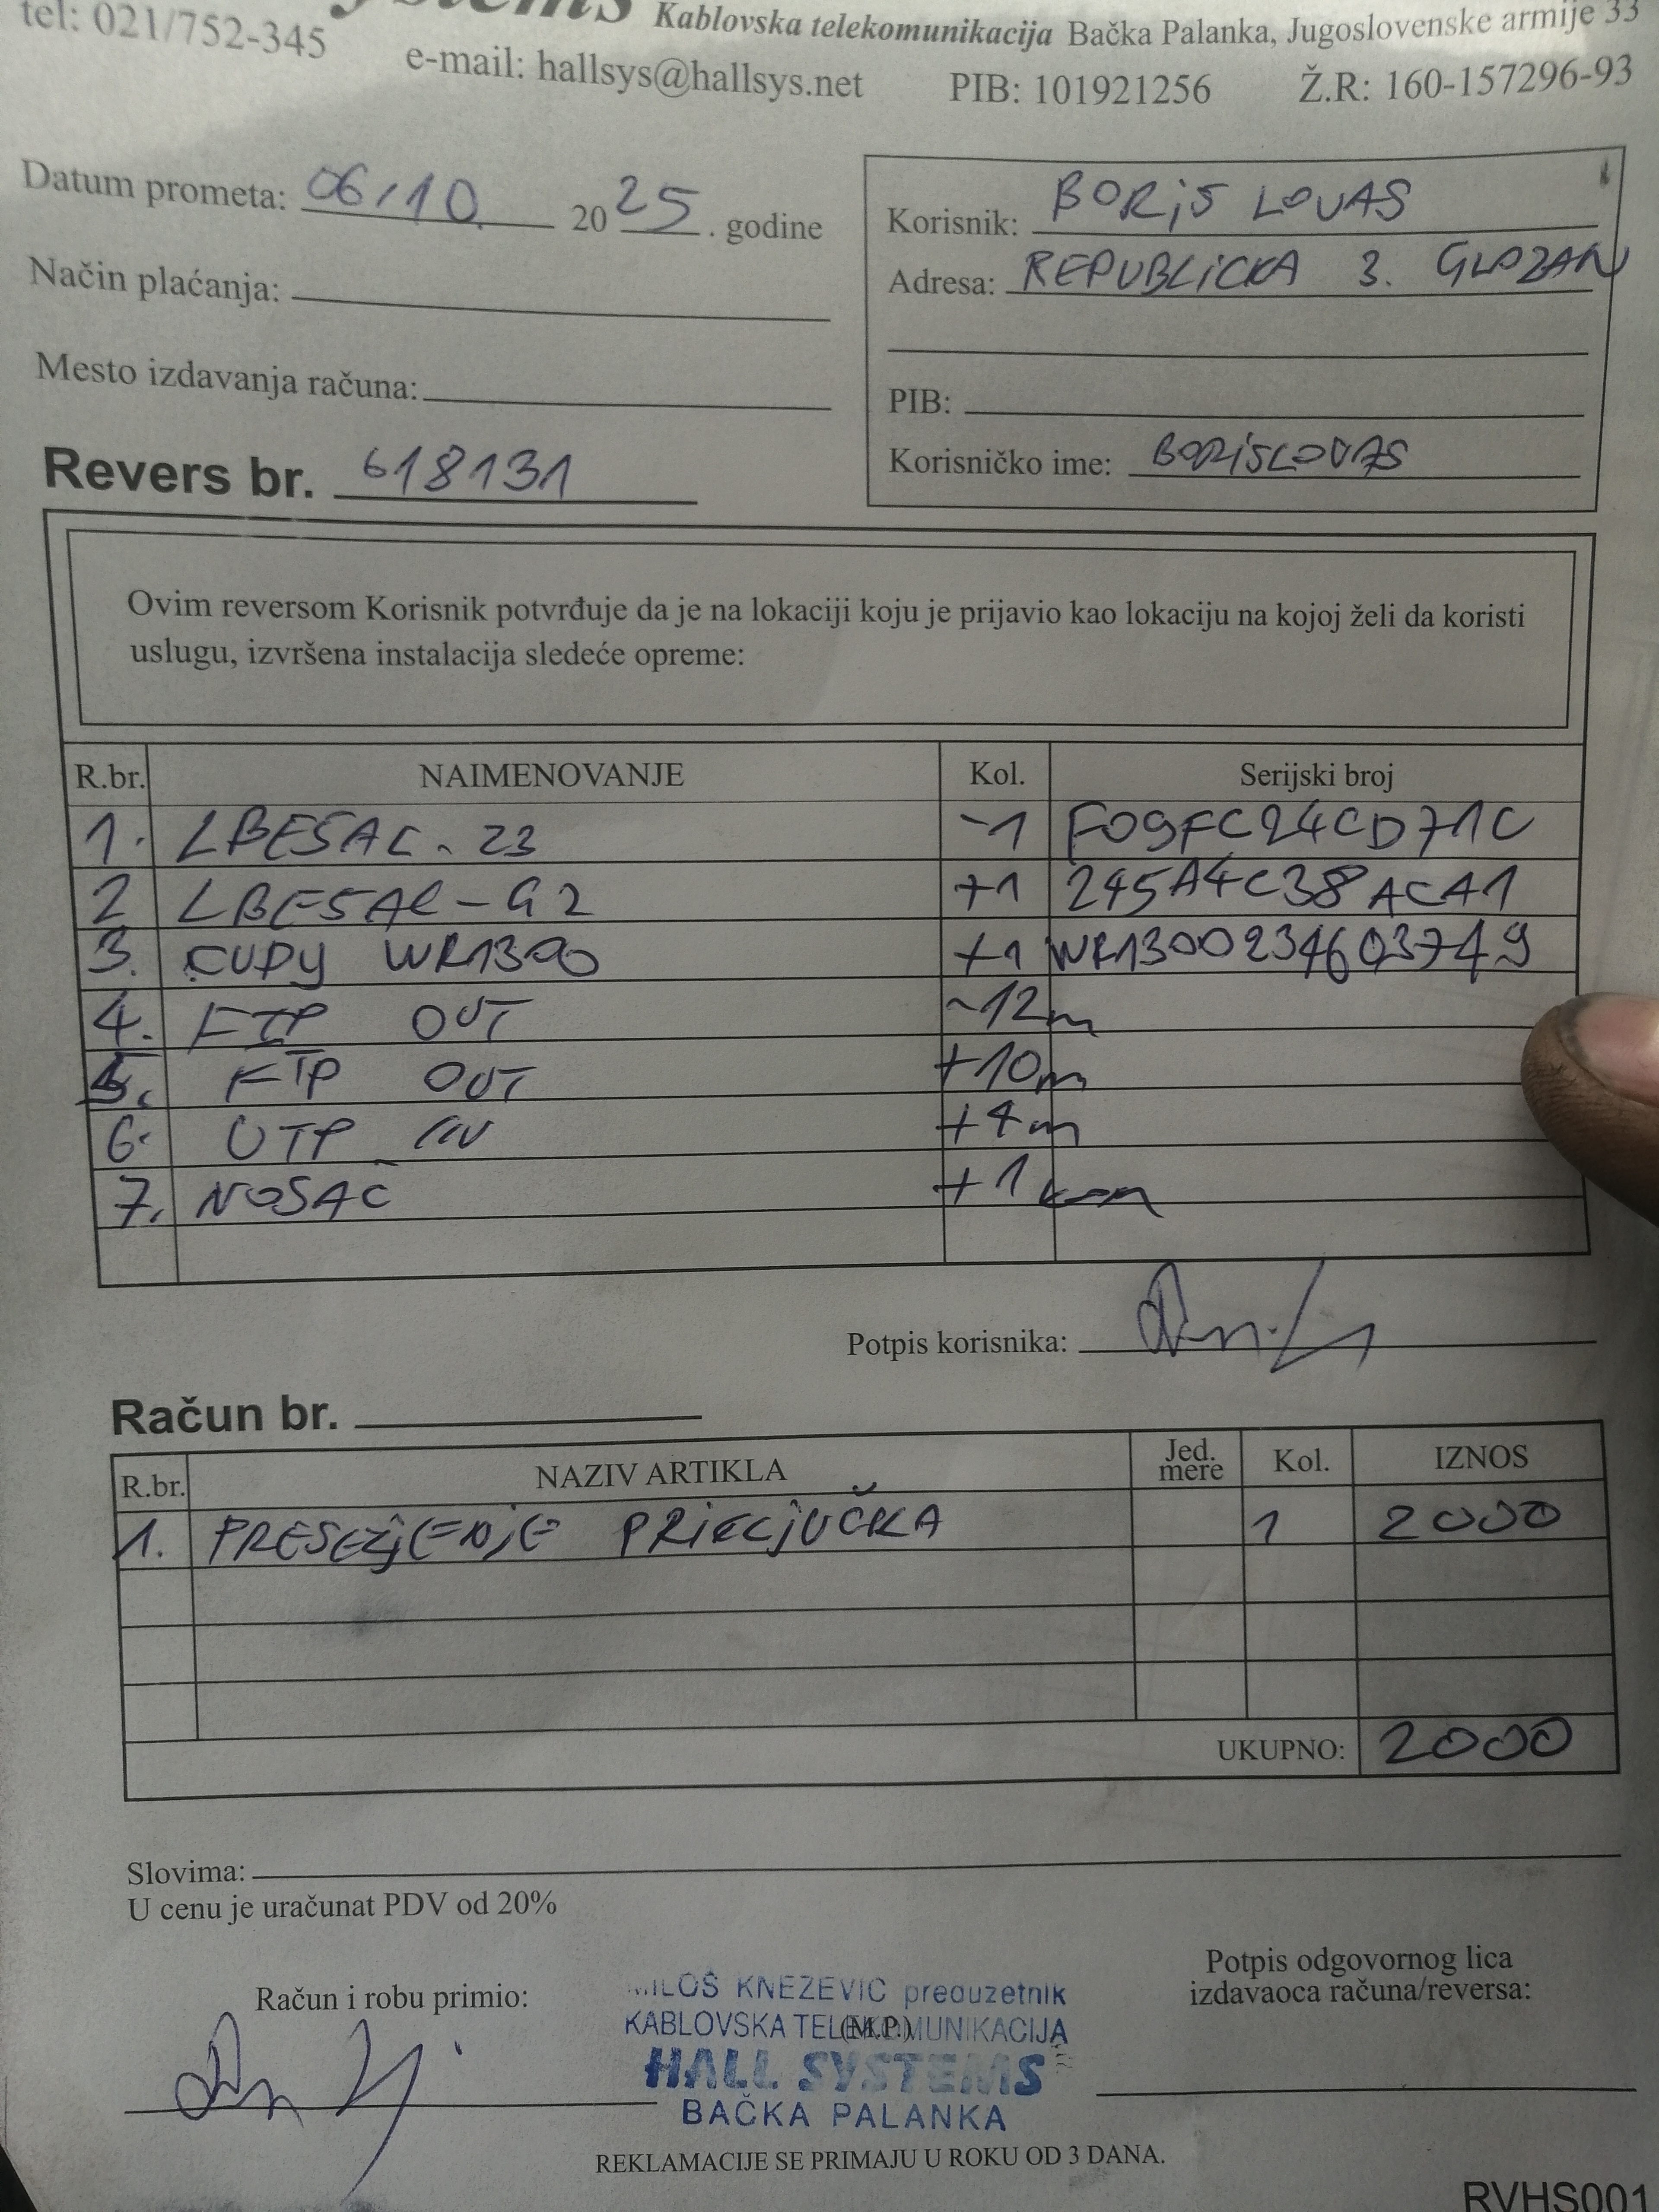 ystems Kablovska telekomunikacija Bačka Palanka, Jugoslovenske armije 33
tel: 021/752-345 e-mail: hallsys@hallsys.net PIB: 101921256 Ž.R: 160-157296-93
Datum prometa: 06/10. 2025. godine
Način plaćanja:
Mesto izdavanja računa:
Revers br. 618131
Korisnik: BORiS LOVAS
Adresa: REPUBLiCKA 3. GLOZAN
PIB:
Korisničko ime: BORiSLOVAS
Ovim reversom Korisnik potvrđuje da je na lokaciji koju je prijavio kao lokaciju na kojoj želi da koristi
uslugu, izvršena instalacija sledeće opreme:
R.br. NAIMENOVANJE Kol. Serijski broj
1. LBE5AC-23 -1 F09FC24CD71C
2 LBE5AC-G2 +1 245A4C38ACA1
3. CUDY WR1300 +1 WR1300234603749
4. FTP OUT -12m
5. FTP OUT +10m
6. UTP IN +4m
7. NOSAC +1 kom
Potpis korisnika:
Račun br.
R.br. NAZIV ARTIKLA Jed. mere Kol. IZNOS
1. PRESELjENjE PRiKLjUČKA 1 2000
UKUPNO: 2000
Slovima:
U cenu je uračunat PDV od 20%
Račun i robu primio:
MILOŠ KNEZEVIC preduzetnik
KABLOVSKA TELEKOMUNIKACIJA
(M.P.)
HALL SYSTEMS
BAČKA PALANKA
Potpis odgovornog lica
izdavaoca računa/reversa:
REKLAMACIJE SE PRIMAJU U ROKU OD 3 DANA.
RVHS001